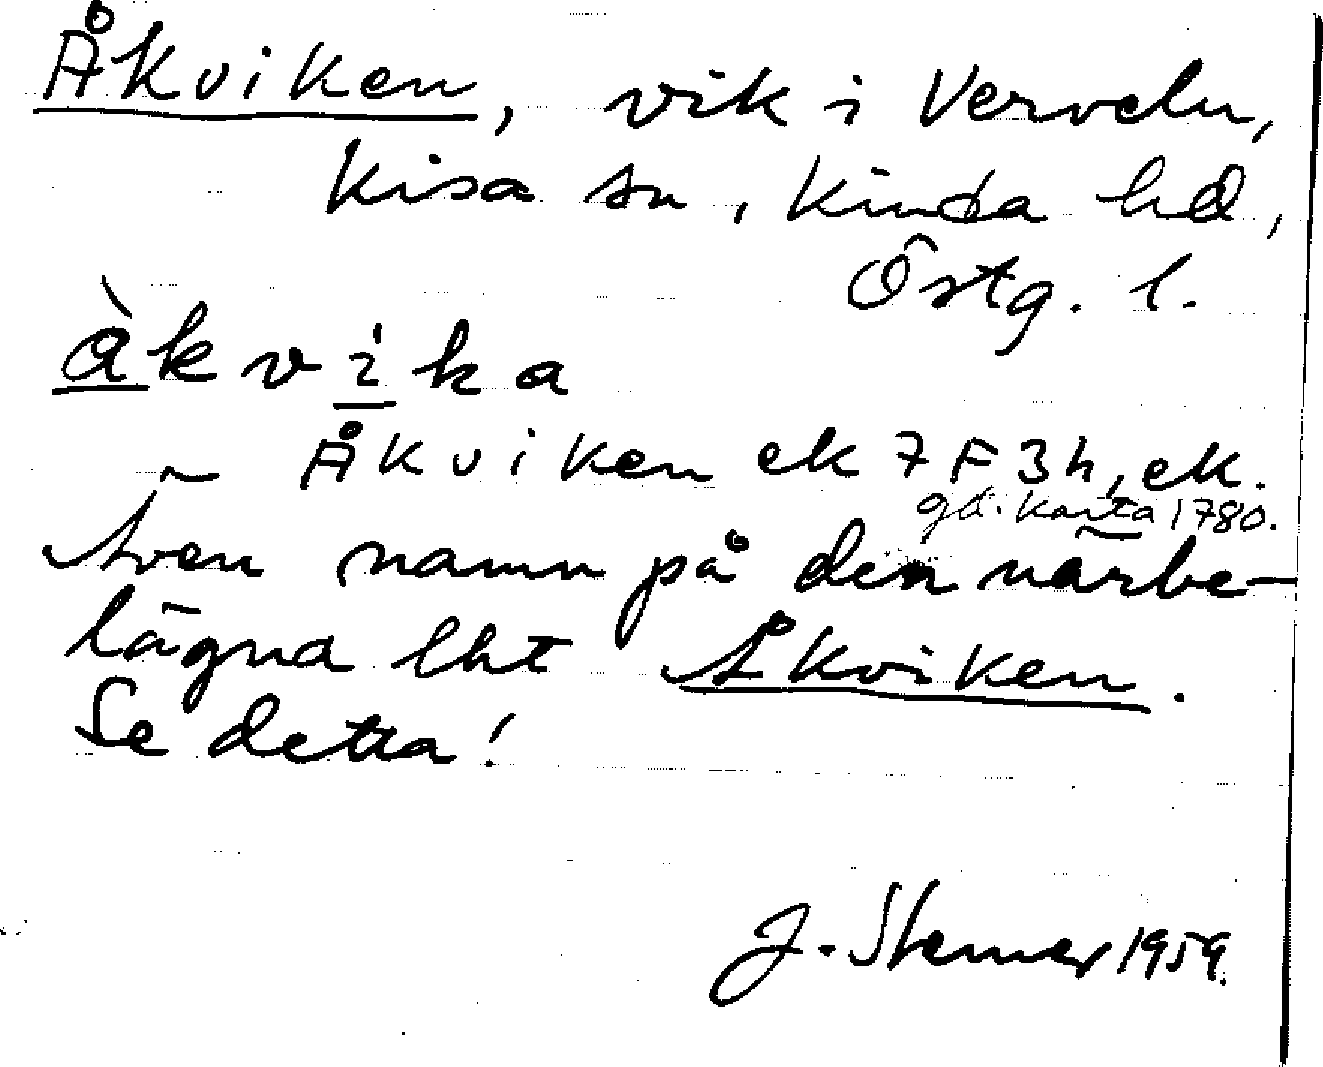 Åkviken, vik i Verveln,
Kisa sn, Kinda hd,
Östg. l.
àkvika
~ Åkviken ek 7F3h, ek.
gk. karta 1780.
Även namn på den närbe-
lägna lht Åkviken.
Se detta!
J. Stenner 1959.